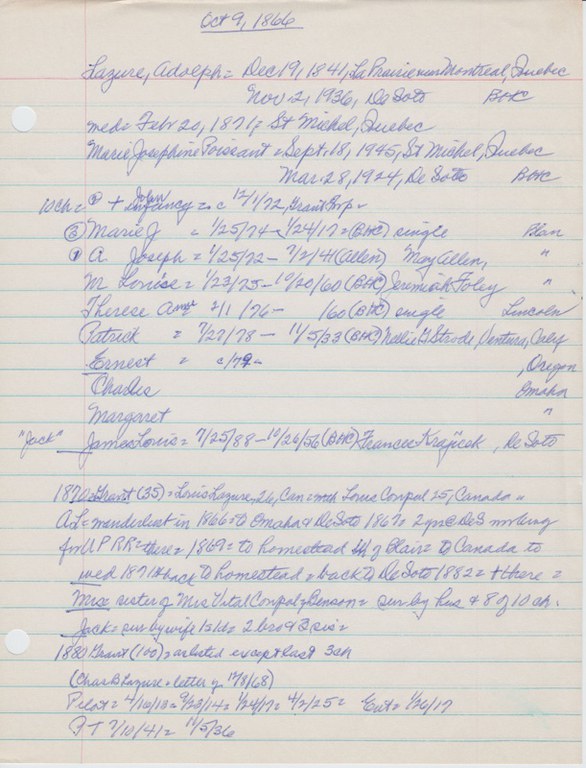 Oct 9, 1866
Lazure, Adolph = Dec 19, 1841, La Prairie near Montreal, Quebec
Nov. 2, 1936, De Soto BHC
wed = Feb 20, 1871, St Michel, Quebec
Marie Josephine Poissant = Sept. 18, 1945, St Michel, Quebec
Mar 28, 1924, De Soto BHC
10 ch = + John infancy = c 12/1/72, Grant
② Marie J - 1/25/74 - 1/24/17 = (BHC) single Blair
① A. Joseph = 1/25/72 - 7/2/41 (Allen) May Allen, "
M Louise = 1/23/75 - 10/20/60 (BHC) Jeremiah Foley "
Therese 2/1/76 - /60 (BHC) single Lincoln
Patrick = 7/27/78 - 11/5/33 (BHC) Nellie G Strode, Ventura, Calif
Ernest = c/79 - , Oregon
Charles Omaha
Margaret "
"Jack" James Louis = 7/25/88 - 10/26/56 (BHC) Frances Krajicek, De Soto
1870 = Grant (35) = Louis Lazure, 26, Can = with Louis Conpal 25, Canada =
AL = wanderlust in 1866 = to Omaha & De Soto 1867 = 2 yrs @ DeS working
for UP RR = there = 1869 = to homestead of Blair = to Canada to
wed 1871 = back to homestead = back to De Soto 1882 = + there =
Mrs sister of Mrs Vital Conpal, Benson = sur by hus & 8 of 10 ch.
Jack = sur by wife 2 bro & 3 sis =
1880 Grant (100) = as listed except last 3 ch
(Chas B Lazure = letter of 12/8/68)
Pilot = 4/16/13 = 9/23/14 = 1/24/17 = 4/2/25 = Ent = 1/26/17
7/10/41 = 11/5/36